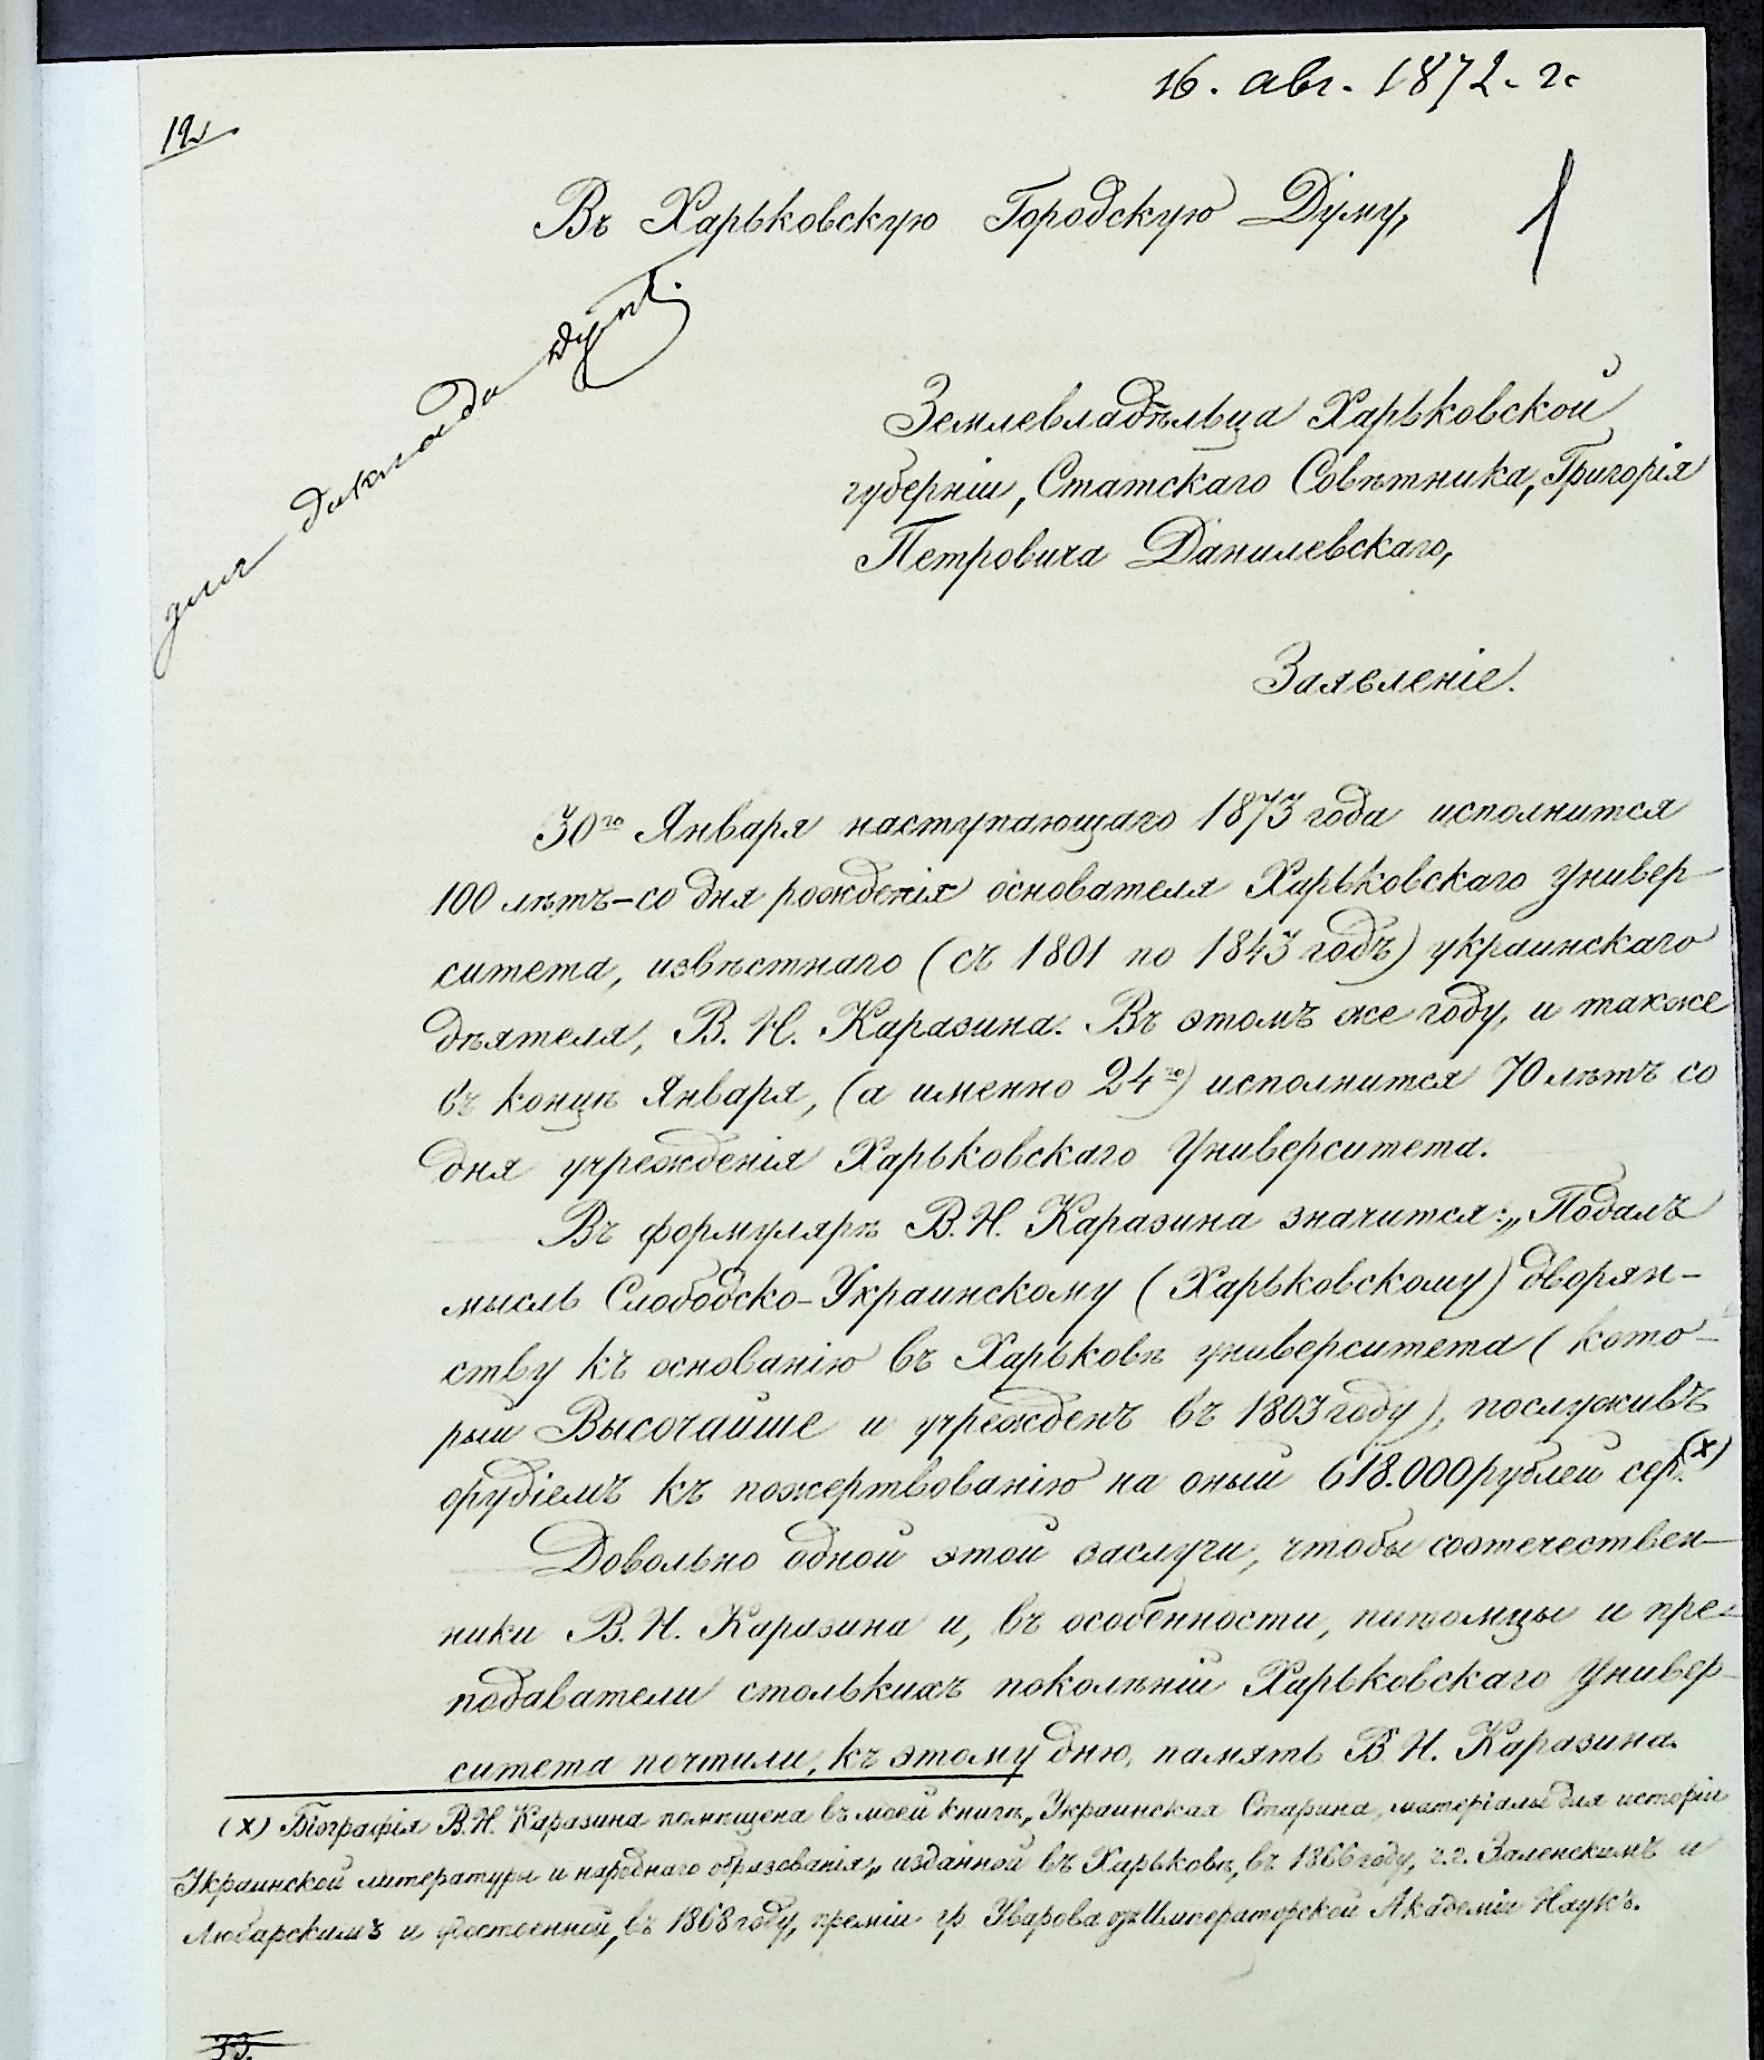 16. авг. 1872. г.
12
Въ Харьковскую Городскую Думу,
1
для доклада думѣ.
Землевладѣльца Харьковской
губерніи, Статскаго Совѣтника, Григорія
Петровича Данилевскаго,
Заявленіе.
30го Января наступающаго 1873 года исполнится
100 лѣтъ-со дня рожденія основателя Харьковскаго Универ-
ситета, извѣстнаго (съ 1801 по 1843 годъ) украинскаго
дѣятеля, В. Н. Каразина. Въ этомъ же году, и также
въ концѣ Января, (а именно 24го) исполнится 70 лѣтъ со
дня учрежденія Харьковскаго Университета.
Въ формулярѣ В. Н. Каразина значится: „Подалъ
мысль Слободско-Украинскому (Харьковскому) дворян-
ству къ основанію въ Харьковѣ университета (кото-
рый Высочайше и учрежденъ въ 1803 году), послуживъ
орудіемъ къ пожертвованію на оный 618.000 рублей сер. (х)
Довольно одной этой заслуги, чтобы соотечествен-
ники В. Н. Каразина и, въ особенности, питомцы и пре-
подаватели столькихъ поколѣній Харьковскаго Универ-
ситета почтили, къ этому дню, память В. Н. Каразина.
(х) Біографія В. Н. Каразина помѣщена въ моей книгѣ „Украинская Старина, матеріалы для исторіи
Украинской литературы и народнаго образованія„ изданной въ Харьковѣ, въ 1866 году, г.г. Заленскимъ и
Любарскимъ и удостоенной, въ 1868 году, преміи гр Уварова отъ Императорской Академіи Наукъ.
33.